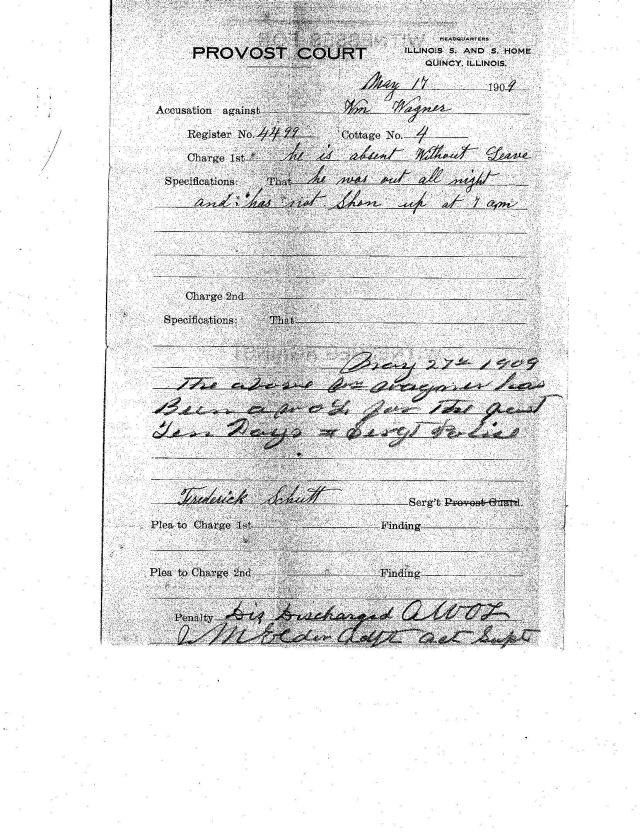 HEADQUARTERS
PROVOST COURT ILLINOIS S. AND S. HOME
QUINCY, ILLINOIS.
May 17 1909
Accusation against Wm Wagner
Register No. 4499 Cottage No. 4
Charge 1st he is absent Without Leave
Specifications: That he was out all night
and has not Shon up at 7 am
Charge 2nd
Specifications: That
May 27th 1909
The above Wm Wagner has
Been a w o L for the past
Ten Days Sergt Police
Frederick Schutt Serg't Provost Guard.
Plea to Charge 1st Finding
Plea to Charge 2nd Finding
Penalty Dis Discharged A W O L
Elder Adjt act Supt